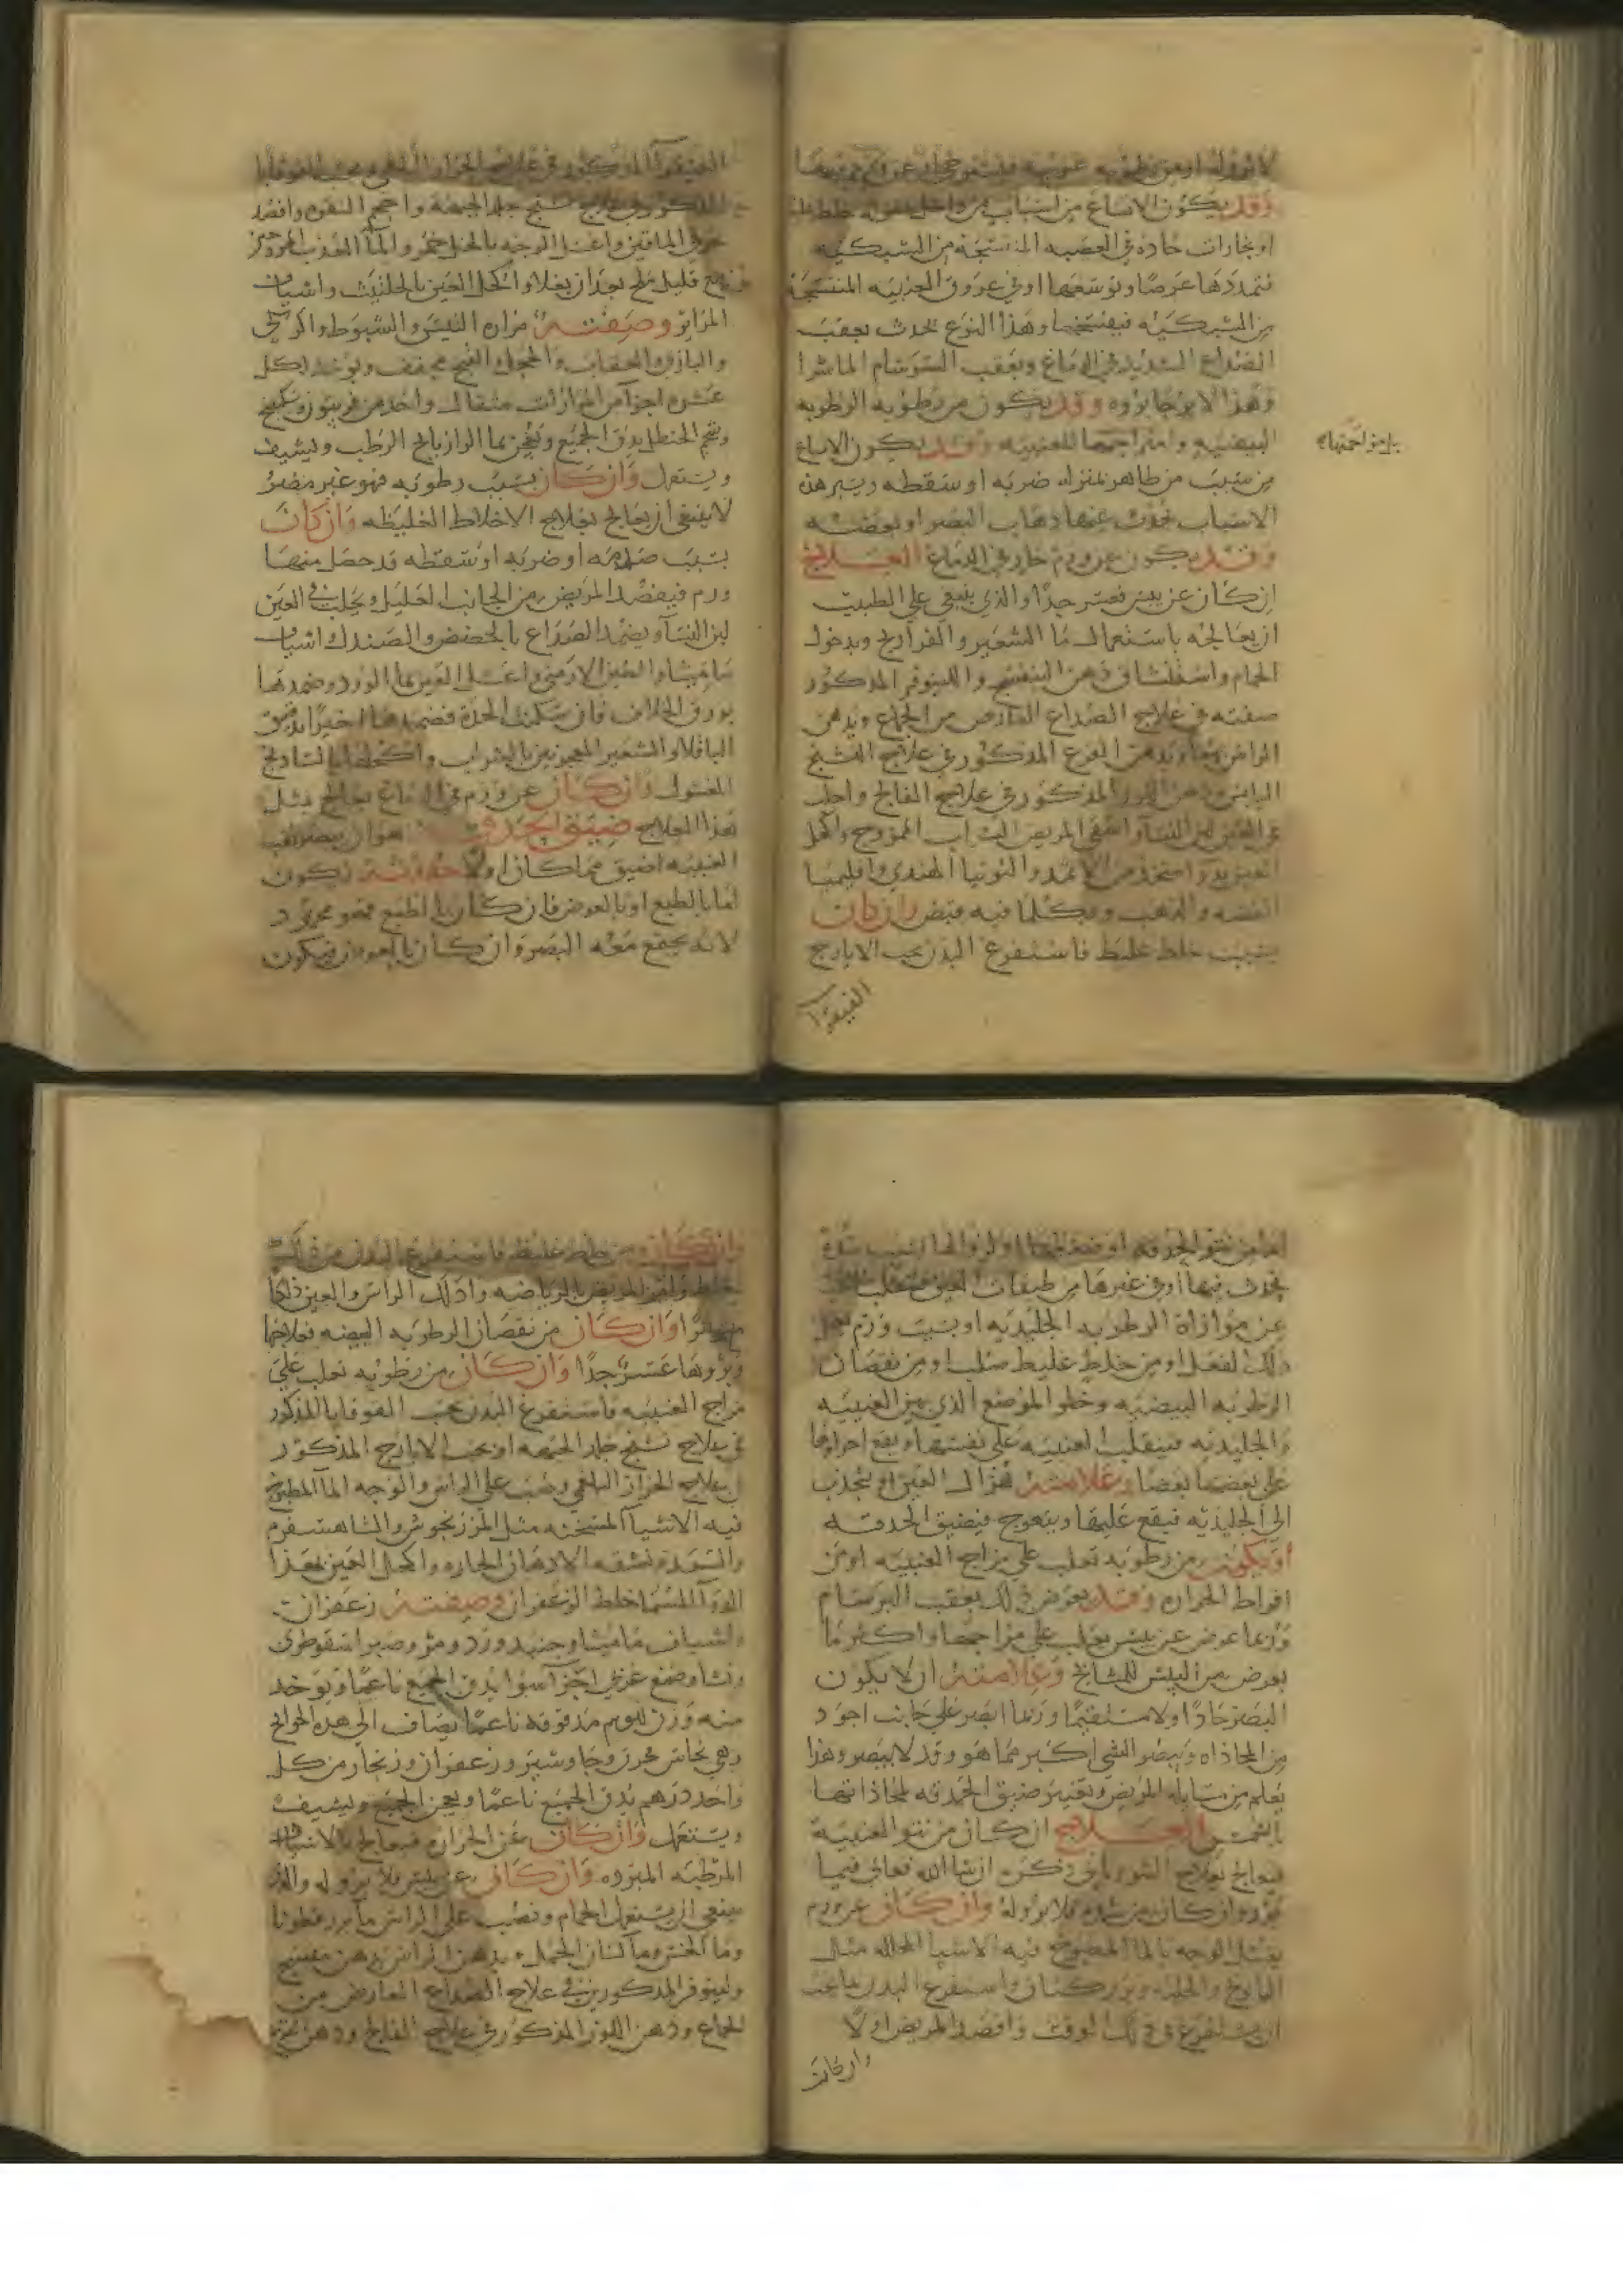 وقد يكون الاتساع من اسباب من داخل
او بخارات حاده في العصبه المنتسجه من الشبكيه
فتمددها عرضا وتوسعها او في عروق العنبيه المنتسجه
من الشبكيه فيفتحها وهذا النوع يحدث بعقب
الصداع الشديد في الدماغ وبعقب
وهذا لا يرجا بروه وقد يكون من رطوبه الرطوبه
البيضيه للعنبيه وقد يكون الاتساع
من سبب من ظاهر بمنزله ضربه او سقطه
الاسباب يحدث عنها ذهاب البصر او بعضه
وقد يكون عن ورم حار في الدماغ العلاج
ان كان عن يبس فعسر جدا والذي ينبغي على الطبيب
ان يعالجه باستعمال ما الشعير والفراريج وبدخول
الحمام واستنشاق دهن البنفسج واللينوفر المذكور
صفته في علاج الصداع العارض من الجماع
القرع المذكور في علاج التشنج
اليابس المذكور في علاج الفالج واحلب
في العين لبن النسا واسقي المريض الشراب الممزوج واكحل
الاثمد والتوتيا الهندي واقليميا
الفضه والذهب وبكلما فيه قبض وان كان
بسبب خلط غليظ فاستفرغ البدن بحب الايارج
الفيقرا
الفيقرا المذكور في علاج
المذكور في علاج تشنج جلد الجبهه واحجم النقره وافصد
عرقي الماقين واغسل الوجه بالخل خمر والما العذب
قليل ملح بعد ان يغلا واكحل العين بالحلتيت واشياف
المراير وصفته مراره النيس والشبوط والكركي
والبازي والعقاب والحجل والقبج مجفف ويوخذ لكل
عشره اجزا من المرارات مثقال واحد من فربيون وسكبينج
وشحم الحنظل يدق الجميع ويعجن بما الرازيانج الرطب ويشيف
ويستعمل وان كان بسبب رطوبه فهو غير مضر
لا ينبغي ان يعالج بعلاج الاخلاط الغليظه وان كان
بسبب صدمه او ضربه او سقطه قد حصل منها
ورم فيفصد المريض من الجانب العليل ويحلب في العين
لبن النسا ويضمد الصداع بالحضض والصندل واشياف
ماميثا والطين الارمني واغسل العين بما الورد وضمدها
بورق الخلاف فان سكنت الحده فضمدها اخيرا بدقيق
الباقلا والشعير المعجونين بالشراب واكحلها بالشاذنج
المغسول وان كان عن ورم في الدماغ يعالج بمثل
هذا العلاج ضيق الحدقه هو ان يصير ثقب
العنبيه اضيق مما كان اولا حدوثه يكون
اما بالطبع او بالعرض فان كان بالطبع فهو محمود
لانه يجمع معه البصر وان كان بالعرض فيكون
يحدث فيها او في غيرها من طبقات العين
عن موازاة الرطوبه الجليديه او بسبب ورم
ذلك الفعل او من خلط غليظ صلب او من نقصان
الرطوبه البيضيه وخلو الموضع الذي بين العنبيه
والجليديه فينقلب العنبيه على نفسها ويقع اجزاوها
على بعضها بعضا وعلامته هزال العين او ينجذب
الى الجليديه فيقع عليها ويتعوج فيضيق الحدقه
او يكون من رطوبه تغلب على مزاج العنبيه او من
افراط الحراره وقد يعرض ذلك بعقب البرسام
وربما عرض عن يبس يغلب على مزاجها واكثر ما
يعرض من اليبس للمشايخ وعلامته ان لا يكون
البصر حادا ولا مستقيما وربما ابصر على جانب اجود
من المحاذاه ويبصر الشي اكبر مما هو وقد لا يبصر وهذا
يعلم من مسايلة المريض وتعتبر ضيق الحدقه لمحاذاتها
العلاج ان كان من نتو العنبيه
فيعالج بعلاج النتو ذكره ان شا الله تعالى فيما
بعد وان كان من فلا برو له وان كان عن ورم
يغسل الوجه بالما المطبوخ فيه الاشيا المحلله مثل
البابونج والحلبه وبزر كتان واستفرغ البدن
ان يستفرغ في ذلك الوقت وافصد المريض اولا
وان كان
وان كان من خلط غليظ فاستفرغ البدن من ذلك
الخلط وامر المريض بالرياضه وادلك الراس والعين دلكا
وان كان من نقصان الرطوبه البيضه فعلاجها
وبروها عسر جدا وان كان من رطوبه تغلب على
مزاج العنبيه فاستفرغ البدن بحب القوقايا المذكور
في علاج تشنج جلد الجبهه او بحب الايارج المذكور
في علاج الحزاز البلغمي وصب على الراس والوجه الما المطبوخ
فيه الاشيا المسخنه مثل المرزنجوش والشاهسفرم
الادهان الحاره واكحل العين بهذا
الدوا المسما خلط الزعفران وصفته زعفران
واشياف ماميثا وجنبد ورد ومر وصبر اسقوطري
ونشا وصمغ عربي اجزا سوا يدق الجميع ناعما ويوخذ
منه وزن مدقوقه ناعما يضاف الى هذه الحوايج
وهي نحاس محرق وجاوشير وزعفران وزنجار من كل
واحد درهم يدق الجميع ناعما ويعجن الجميع ويشيف
ويستعمل وان كان عن الحراره فيعالج بالاشيا
المرطبه المبرده وان كان عن يبس فلا برو له والذي
ينبغي ان يستعمل الحمام وتصب على الراس ما بزر قطونا
وما الخس وما لسان الحمل ويدهن الراس بدهن بنفسج
ولينوفر المذكورين في علاج الصداع العارض من
الجماع ودهن اللوز المذكور في علاج الفالج ودهن